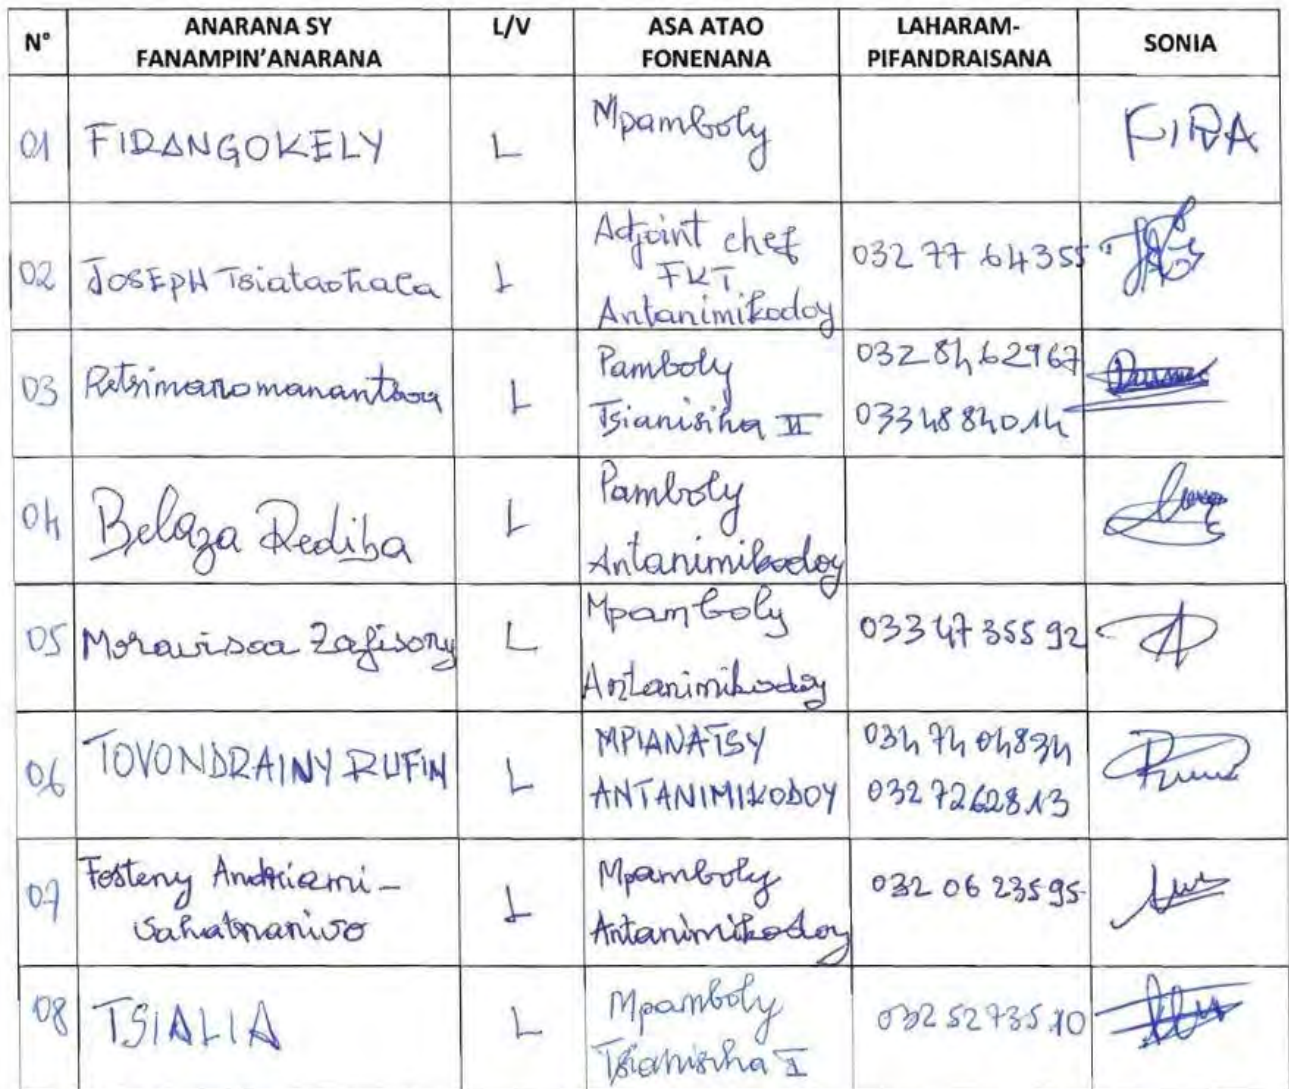 N° ANARANA SY FANAMPIN'ANARANA L/V ASA ATAO FONENANA LAHARAM-PIFANDRAISANA SONIA
01 FIRANGOKELY L Mpamboly FIRA
02 JOSEPH L Adjoint chef FKT Antanimikodoy 032 77 64355
03 L Pamboly Tsianisiha II 032 84 62967
033 48 84014
04 Belaza Rediba L Pamboly Antanimikodoy
05 Zafisony L Mpamboly Antanimikodoy 033 47 355 92
06 TOVONDRAINY RUFIN L MPIANATSY ANTANIMIKODOY 034 74 04834
032 72628 13
07 Fosteny L Mpamboly Antanimikodoy 032 06 23595
08 TSIALIA L Mpamboly Tsianisiha I 032 52735 10